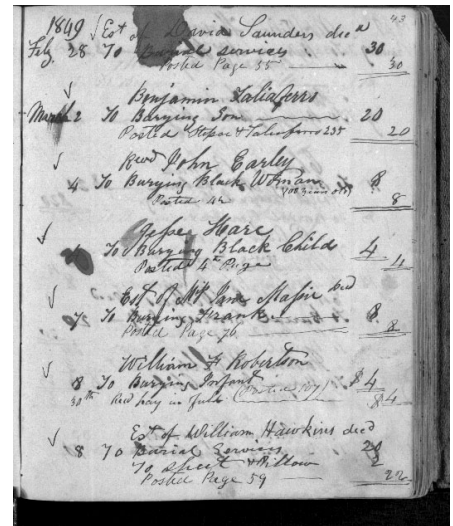 1849 Est of David Saunders decd 43
Feby 28 To Burial services 30
Posted Page 35 30
Benjamin Taliaferro
March 2 To Burying Son 20
Posted 235 20
Revd John Earley
4 To Burying Black Woman 8
Posted 42 8
Jesse Hare
To Burying Black Child 4
Posted 4th Page 4
Est of Massie decd
7 To Burying Frank 8
Posted Page 76 8
William H Robertson
8 To Burying Infant $4
30th Recd pay in full $4
Est of William Hawkins decd
8 To Burial Services 20
To sheet & Pillow 2
Posted Page 59 22